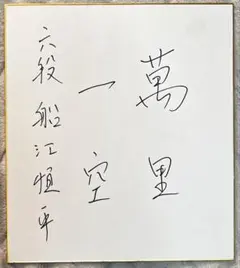 萬里
一空
六段 船江恒平